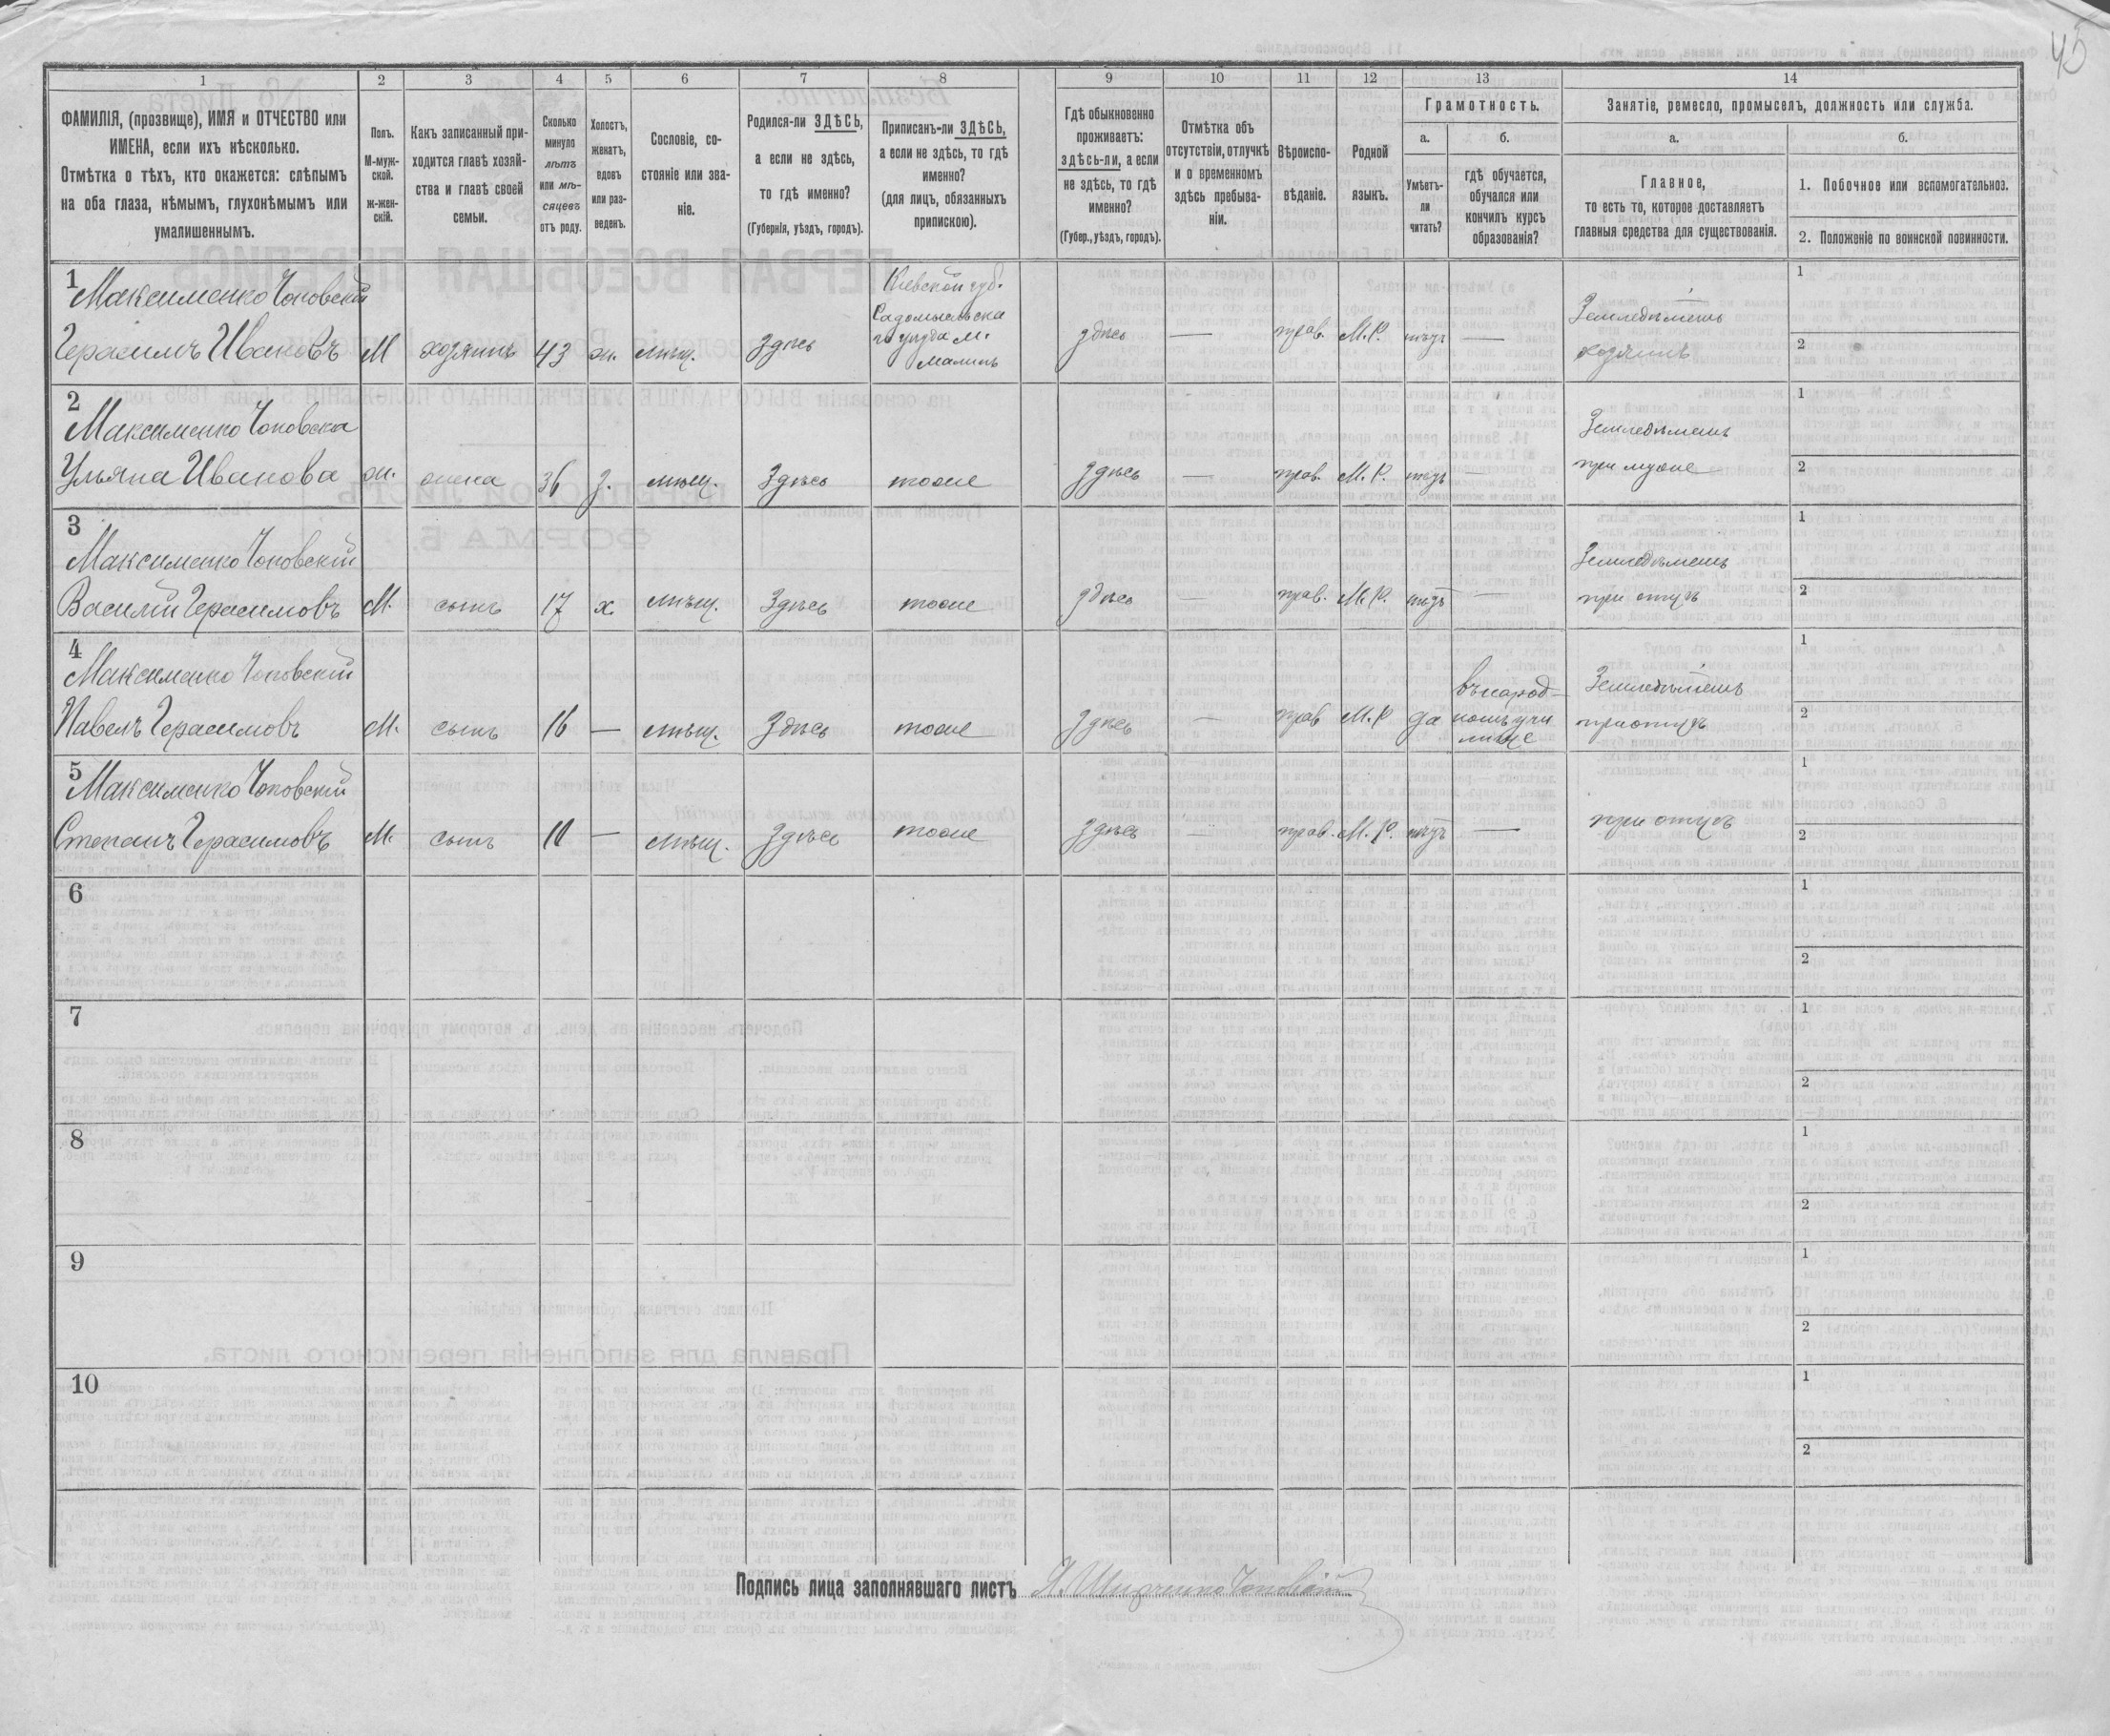 45
1 2 3 4 5 6 7 8 9 10 11 12 13 14
ФАМИЛІЯ, (прозвище), ИМЯ и ОТЧЕСТВО или
ИМЕНА, если ихъ нѣсколько.
Отмѣтка о тѣхъ, кто окажется: слѣпымъ
на оба глаза, нѣмымъ, глухонѣмымъ или
умалишеннымъ.
Полъ.
М-муж-
ской.
ж-жен-
скій.
Какъ записанный при-
ходится главѣ хозяй-
ства и главѣ своей
семьи.
Сколько
минуло
лѣтъ
или мѣ-
сяцевъ
отъ роду.
Холостъ,
женатъ,
вдовъ
или раз-
веденъ.
Сословіе, со-
стояніе или зва-
ніе.
Родился-ли ЗДѢСЬ,
а если не здѣсь,
то гдѣ именно?
(Губернія, уѣздъ, городъ).
Приписанъ-ли ЗДѢСЬ,
а если не здѣсь, то гдѣ
именно?
(для лицъ, обязанныхъ
припискою).
Гдѣ обыкновенно
проживаетъ:
здѣсь-ли, а если
не здѣсь, то гдѣ
именно?
(Губер., уѣздъ, городъ).
Отмѣтка объ
отсутствіи, отлучкѣ
и о временномъ
здѣсь пребыва-
ніи.
Вѣроиспо-
вѣданіе.
Родной
языкъ.
Грамотность.
а.
Умѣетъ-
ли
читать?
б.
гдѣ обучается,
обучался или
кончилъ курсъ
образованія?
Занятіе, ремесло, промыселъ, должность или служба.
а.
Главное,
то есть то, которое доставляетъ
главныя средства для существованія.
б.
1. Побочное или вспомогательное.
2. Положеніе по воинской повинности.
1
Максименко Чоповскій
Герасимъ Ивановъ М хозяинъ 43 ж. мѣщ. Здѣсь
Кіевской губ.
Радомысльска
го уѣзда м.
Малинъ
здѣсь — прав. М.Р. нѣтъ —
Земледѣлецъ
хозяинъ
1
2
2
Максименко Чоповска
Ульяна Иванова ж. жена 36 з. мѣщ. Здѣсь тоже здѣсь — прав. М.Р. нѣтъ —
Земледѣлецъ
при мужѣ
1
2
3
Максименко Чоповскій
Василій Герасимовъ М. сынъ 17 х. мѣщ. Здѣсь тоже здѣсь — прав. М.Р. нѣтъ —
Земледѣлецъ
при отцѣ
1
2
4
Максименко Чоповскій
Павелъ Герасимовъ М. сынъ 16 — мѣщ. Здѣсь тоже здѣсь — прав М.Р да
въ народ-
номъ учи
лище
Земледѣлецъ
при отцѣ
1
2
5
Максименко Чоповскій
Степанъ Герасимовъ М. сынъ — мѣщ. Здѣсь тоже здѣсь — прав. М.Р. нѣтъ —
при отцѣ
1
2
6
1
2
7
1
2
8
1
2
9
1
2
10
1
2
Подпись лица заполнявшаго листъ